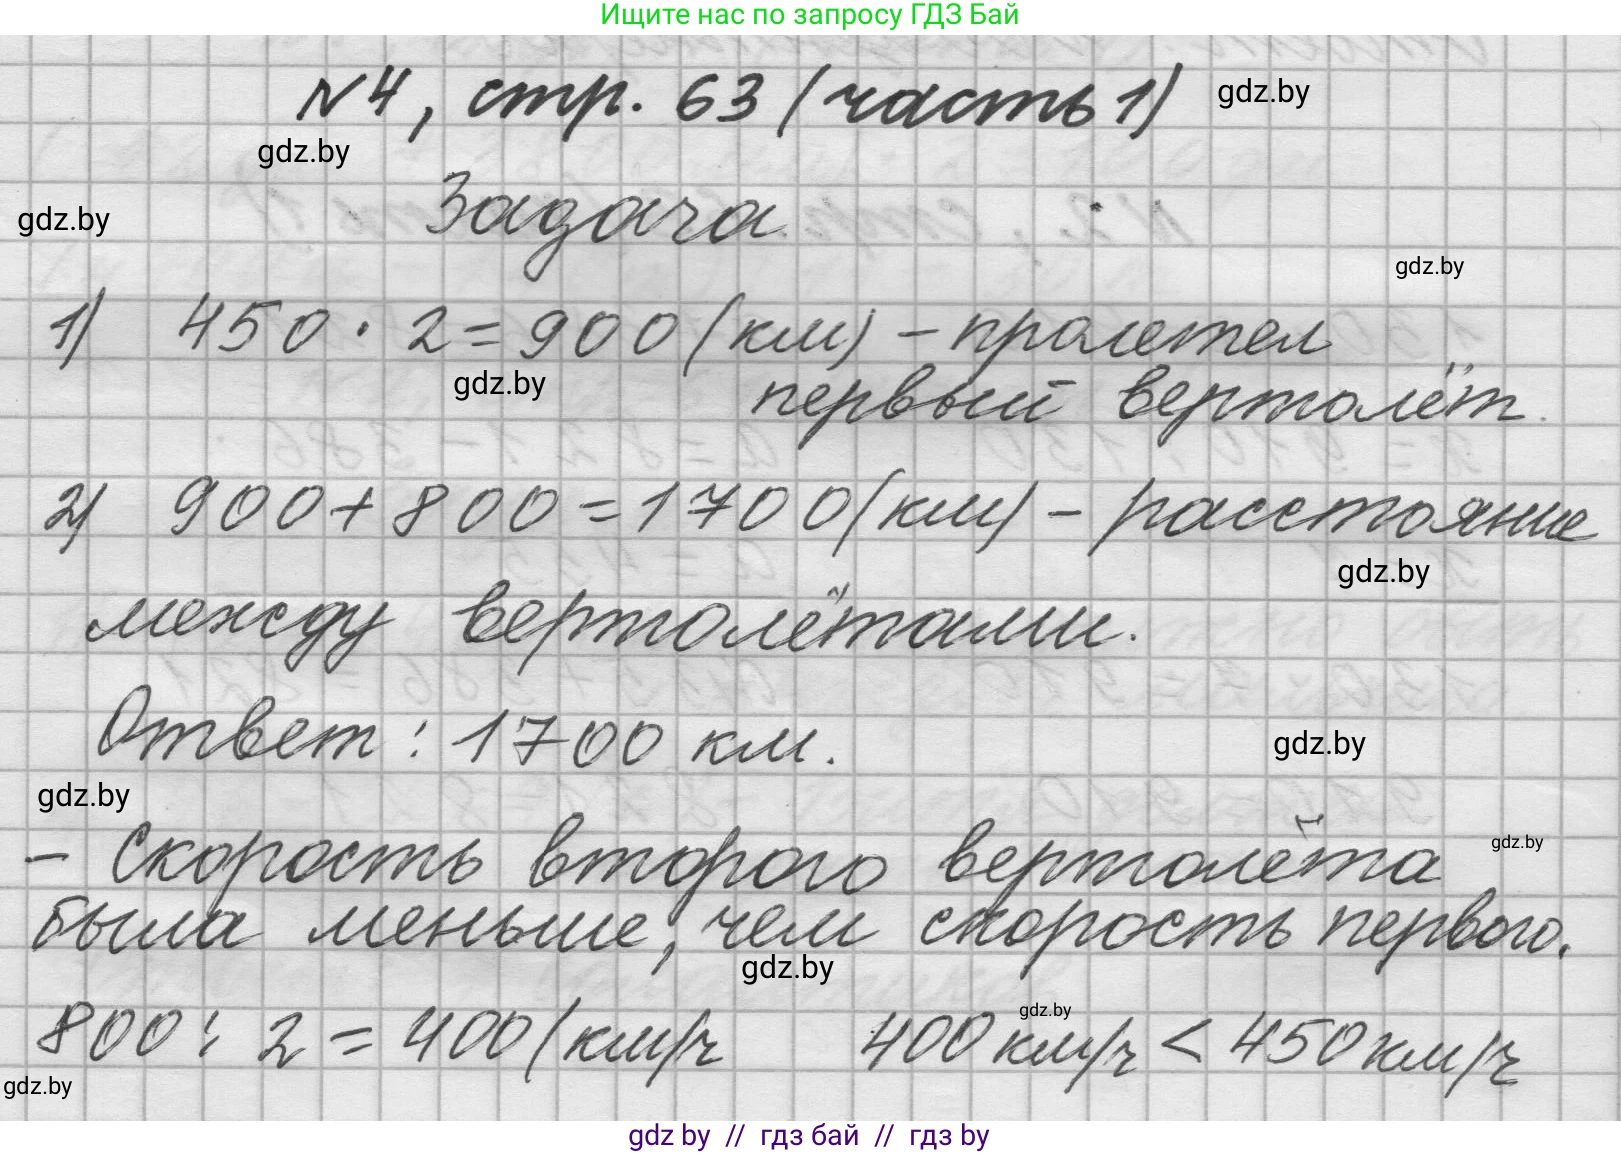 Ищите нас по запросу ГДЗ Бай
№4, стр. 63 (часть 1)
gdz.by
gdz.by
Задача
gdz.by
gdz.by
1) 450 · 2 = 900 (км) – пролетел
gdz.by
первый вертолёт.
2) 900 + 800 = 1700 (км) – расстояние
gdz.by
между вертолётами.
Ответ: 1700 км.
gdz.by
gdz.by
– Скорость второго вертолёта
gdz.by
была меньше, чем скорость первого.
gdz.by
gdz.by
800 : 2 = 400 (км/ч 400 км/ч < 450 км/ч
gdz.by
gdz by // гдз бай // гдз by